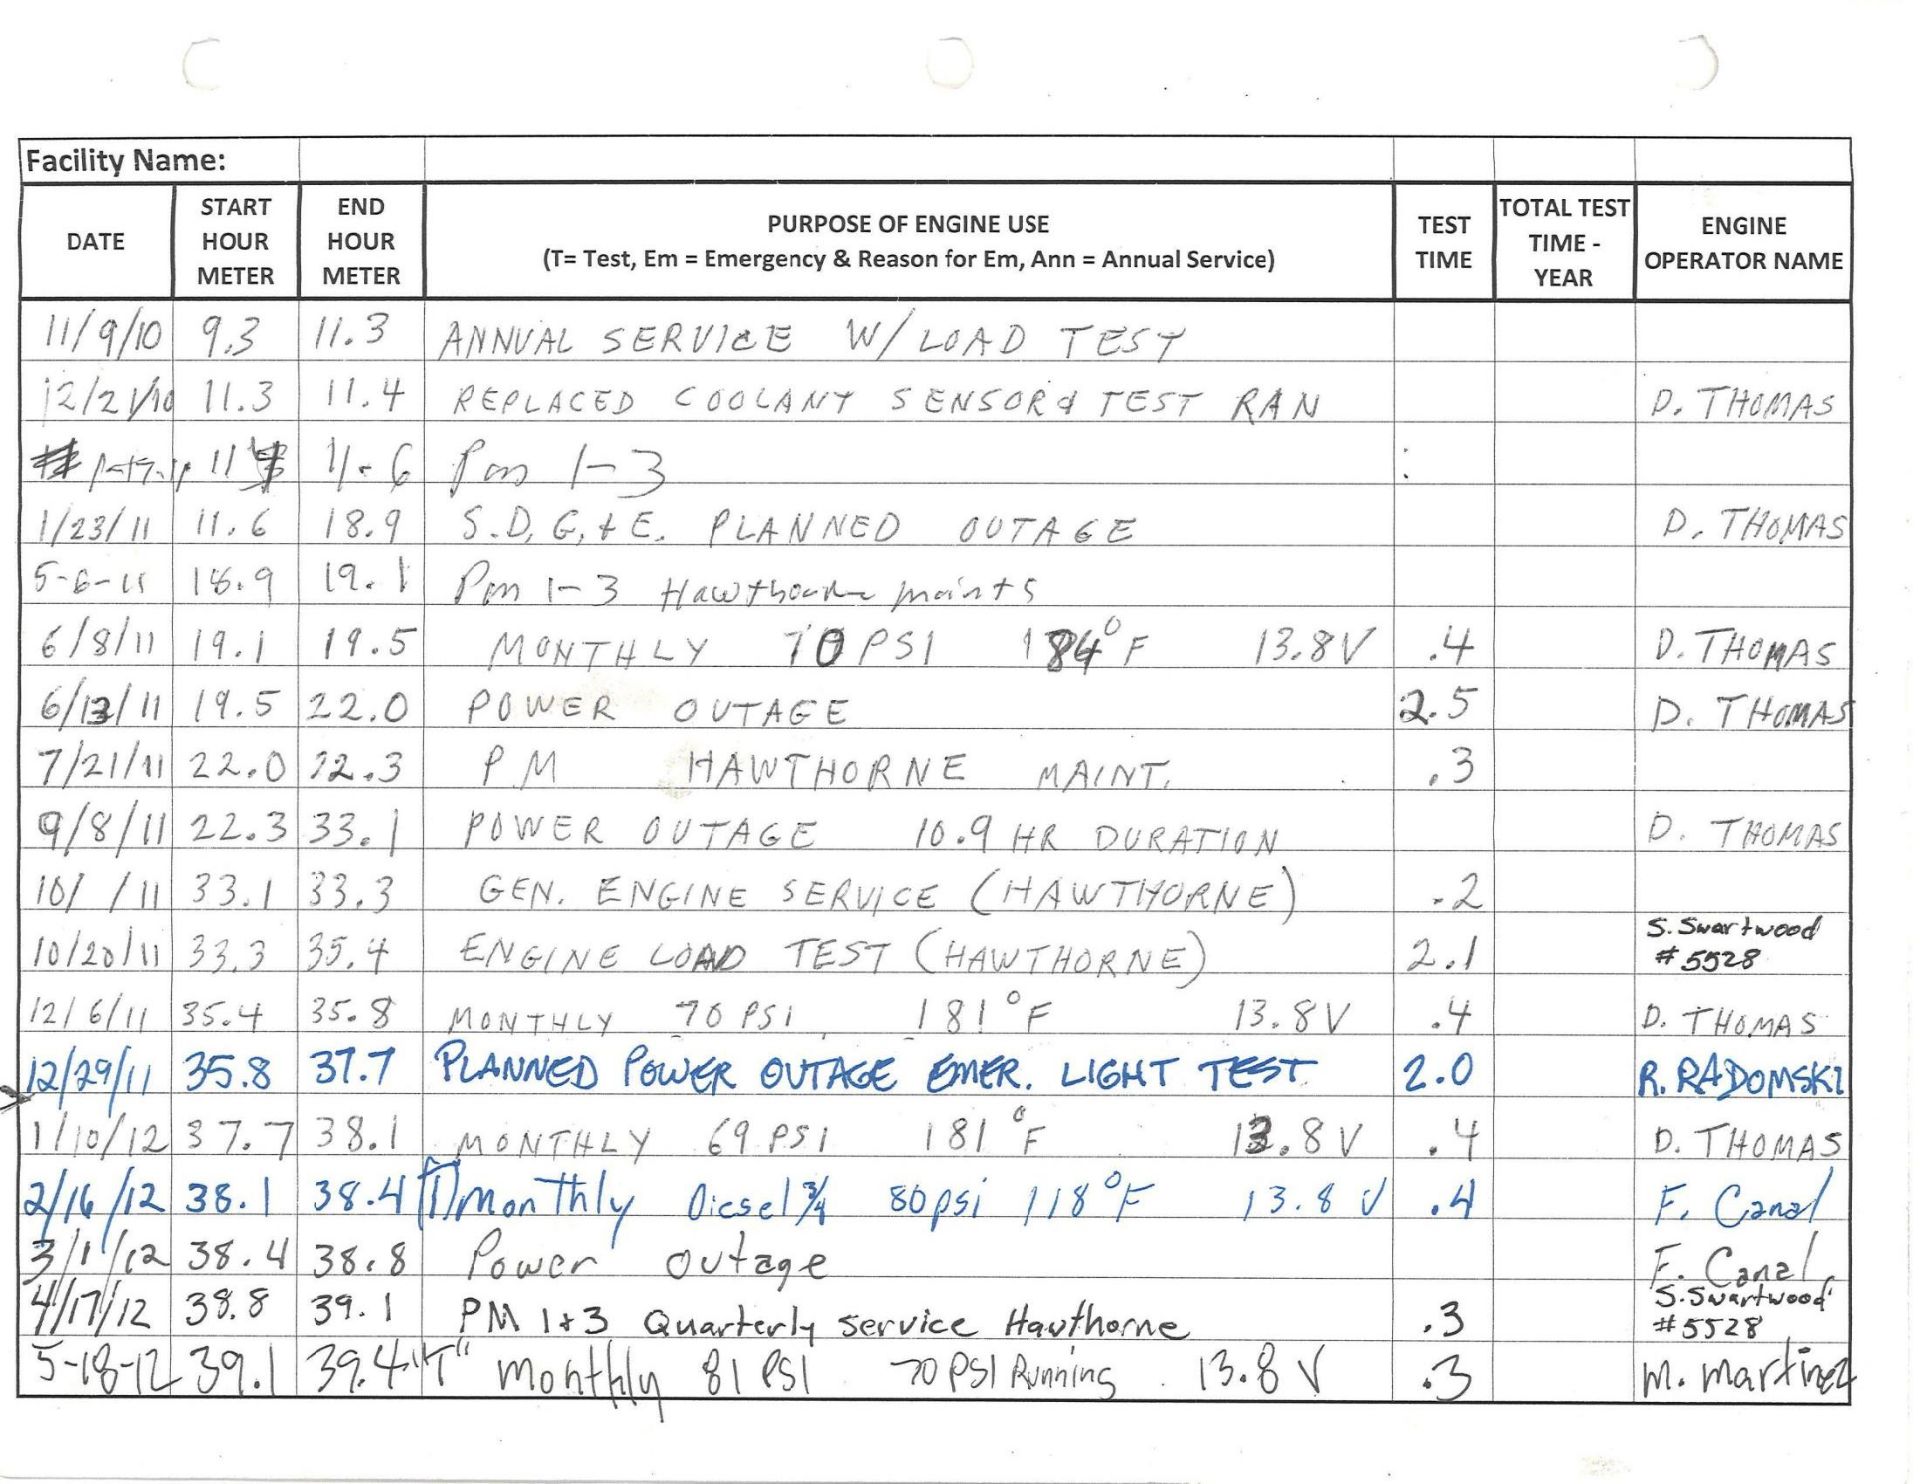 Facility Name:
DATE START HOUR METER END HOUR METER PURPOSE OF ENGINE USE (T= Test, Em = Emergency & Reason for Em, Ann = Annual Service) TEST TIME TOTAL TEST TIME - YEAR ENGINE OPERATOR NAME
11/9/10 9.3 11.3 ANNUAL SERVICE W/ LOAD TEST
12/21/10 11.3 11.4 REPLACED COOLANT SENSOR & TEST RAN D. THOMAS
11.6 Pm 1-3
1/23/11 11.6 18.9 S.D.G.&E. PLANNED OUTAGE D. THOMAS
5-6-11 18.9 19.1 Pm 1-3 Hawthorne maints
6/8/11 19.1 19.5 MONTHLY 70 PSI 184°F 13.8V .4 D. THOMAS
6/13/11 19.5 22.0 POWER OUTAGE 2.5 D. THOMAS
7/21/11 22.0 22.3 PM HAWTHORNE MAINT. .3
9/8/11 22.3 33.1 POWER OUTAGE 10.9 HR DURATION D. THOMAS
10/ /11 33.1 33.3 GEN. ENGINE SERVICE (HAWTHORNE) .2
10/20/11 33.3 35.4 ENGINE LOAD TEST (HAWTHORNE) 2.1 S. Swartwood #5528
12/6/11 35.4 35.8 MONTHLY 70 PSI 181°F 13.8V .4 D. THOMAS
12/29/11 35.8 37.7 PLANNED POWER OUTAGE EMER. LIGHT TEST 2.0 R. RADOMSKI
1/10/12 37.7 38.1 MONTHLY 69 PSI 181°F 13.8V .4 D. THOMAS
2/16/12 38.1 38.4 (T) monthly Diesel 3/4 80psi 118°F 13.8 V .4 F. Canal
3/1/12 38.4 38.8 Power outage F. Canal
4/17/12 38.8 39.1 PM 1+3 Quarterly service Hawthorne .3 S. Swartwood #5528
5-18-12 39.1 39.4 "T" monthly 81 PSI 70 PSI Running 13.8 V .3 M. Martinez